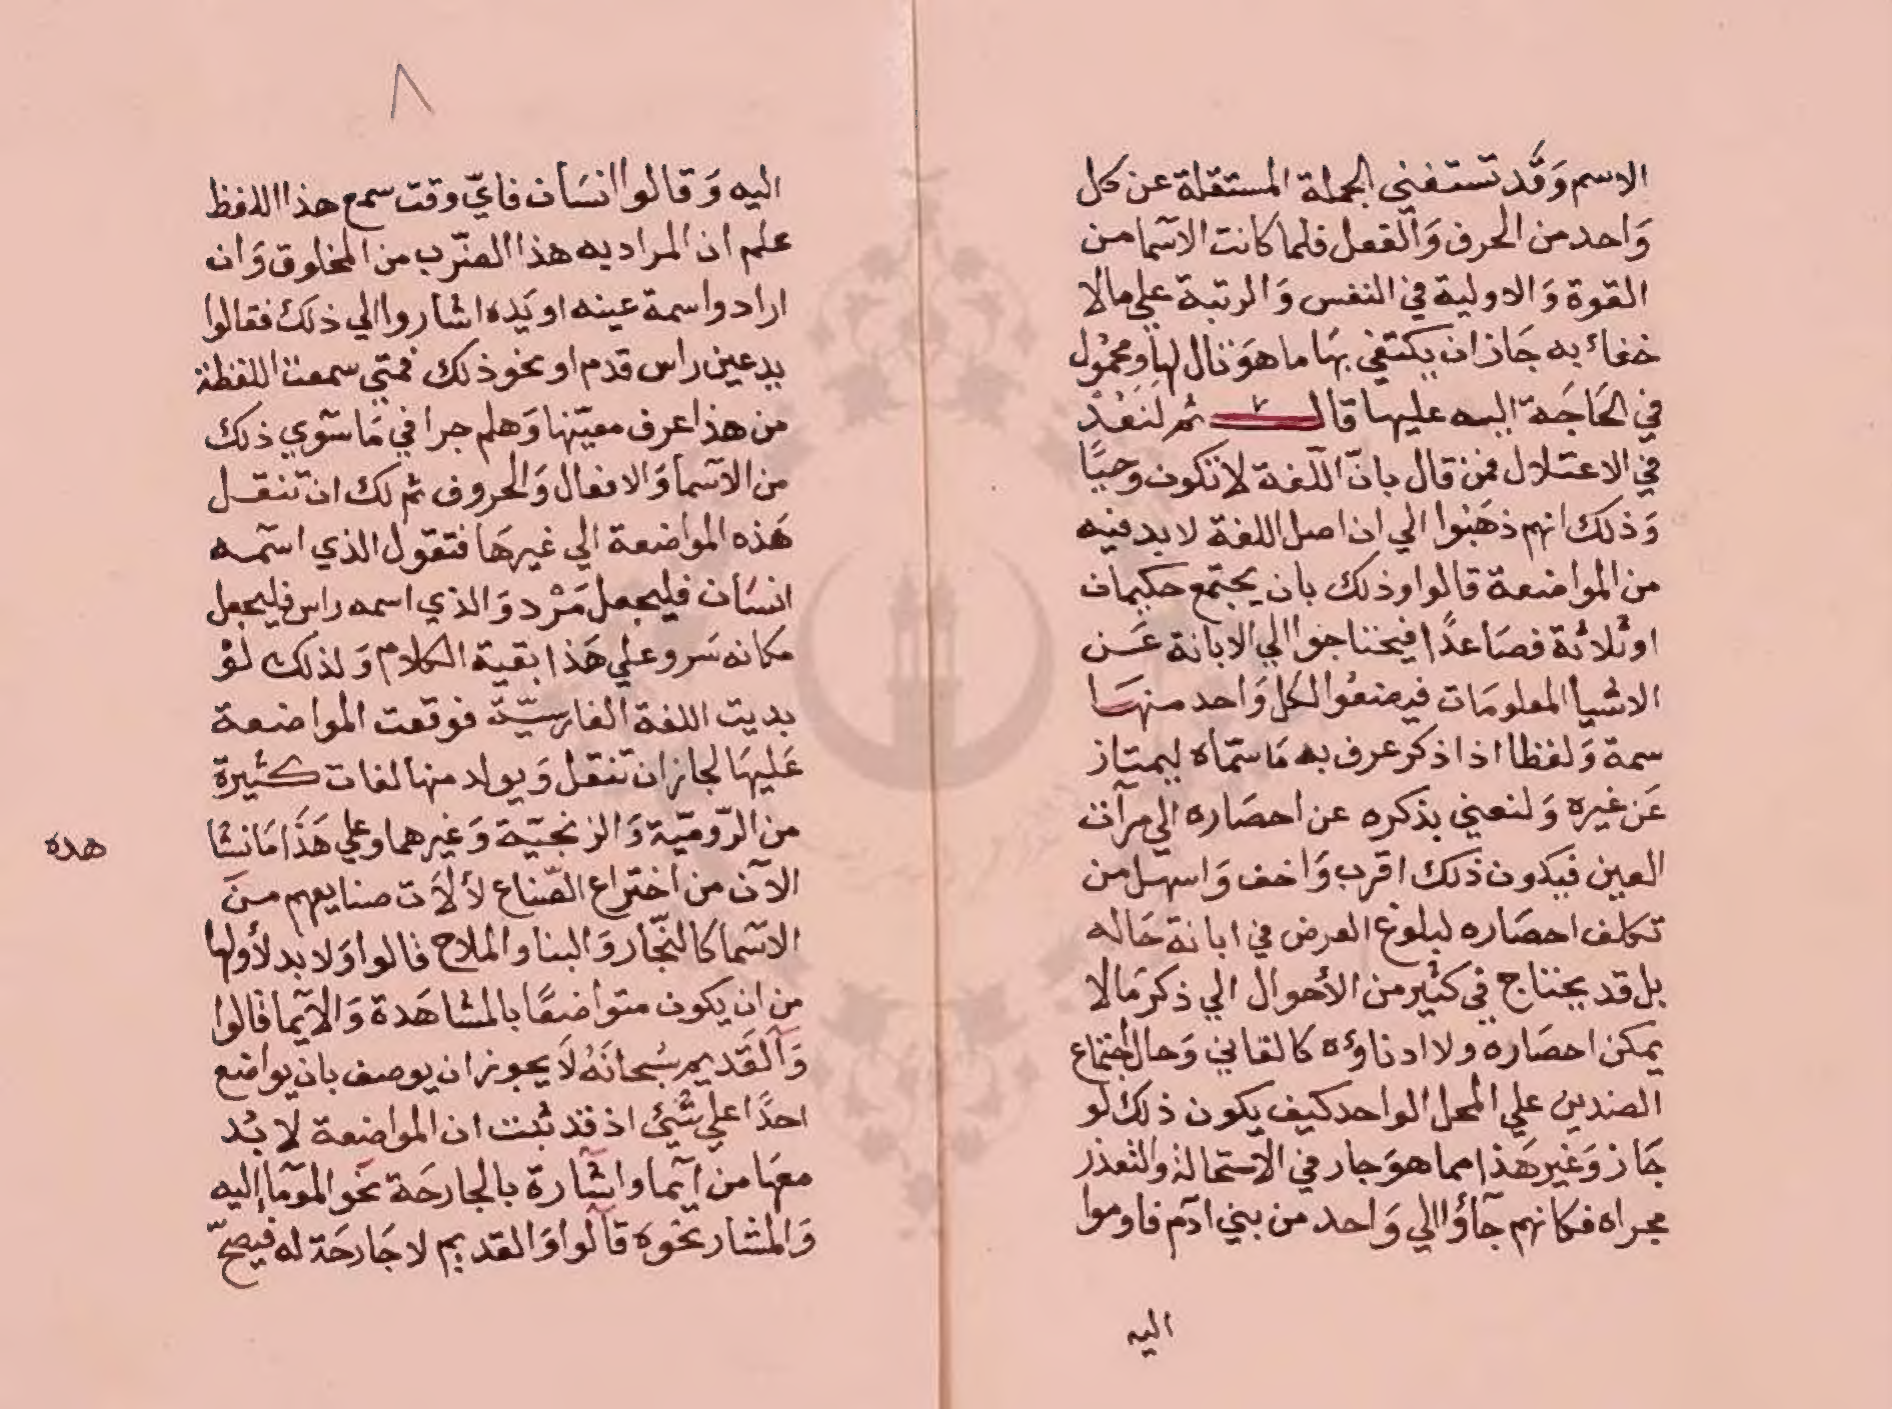 الاسم وَقَد تستغني الجملة المستقلة عن كل
وَاحد من الحرف وَالفعل فلما كانت الاسما من
القوة وَالاولية في النفس وَالرتبة علي مالا
خفاء به جَاز ان يكتفي بهَا ما هوَ تال لهاَ ومحمول
في الحَاجَة اليه عليها قال ثم لنَعُدْ
في الاعتلال فمن قال بانّ اللّغة لا تكون وحيًا
وَذلك انهم ذهَبُوا الي ان اصل اللغة لا بد فيه
من المواضعة قالوا وذلك بان يجتمع حكيمان
او ثلاثة فصَاعدًا فيحتاجوا الي الابانة عَن
الاشيا المعلومَات فيضعُوا لكل وَاحد منهَا
سمة وَلفظا اذا ذكر عرف به مَا سمّاه ليمتاز
عَن غيره وَلنعني بذكره عن احصَاره الي مرآت
العين فيكون ذلك اقرب وَاخف وَاسهل من
تكلف احصَاره لبلوغ الغرض في ابانة حَاله
بل قد يحتاج في كثير من الأحوال الي ذكر مَا لا
يمكن احصَاره ولا ادناوُه كالفاني وَحال اجتماع
الضدين علي المحل الواحد كيف يكون ذلك لو
جَاز وَغير هَذا مما هوَ جار في الاستحالة والتعذر
مجراه فكانهم جآؤا الي وَاحد من بني ادم فاوموا
اليه
٨
اليه وَقالوا انسَان فايّ وقت سمع هذا اللفظ
علم ان المراد به هذا الضّرب من المخلوق وَان
ارادوا سمة عينه او يَده اشاروا الي ذلك فقالوا
يد عين راس قدم او نحو ذلك فمتي سمعت اللفظة
من هذا عرف معيّنها وَهلم جرا في مَا سَوي ذلك
من الاسما وَالافعال وَالحروف ثم لك ان تنقل
هَذه المواضعة الي غيرهَا فتقول الذي اسمه
انسَان فليجعل مَرْد وَالذي اسمه راس فليجعل
مكانه سَر وعلي هَذا بقية الكلام وَلذلك لوْ
بديت اللغة الفارسيّة فوقعت المواضعة
عَليهَا لجاز ان تنقل وَيولد منها لغات كثيرة
من الرّوميّة وَالزنجيّة وَغيرهما وعلي هَذَا مَا نشا
هده
الآن من اختراع الصّناع لألاَت صنايعهم منَ
الاسمَا كالنجّار وَالبنا والملاح قالوا وَلا بد لأولها
من ان يكون متواضعًا بالمشاهَدة وَالايمَا قالوا
وَالقَديم سُبحانَهُ لاَ يجوز ان يوصف بان يواضع
احدًا علي شَيْئ اذ قد ثبت ان المواضعة لا بُد
معهَا من ايمَا واشارة بالجارحَة نحَو الموما إليه
وَالمشار نحْوه قالوا وَالقديم لا جَارحَة له فيصحّ